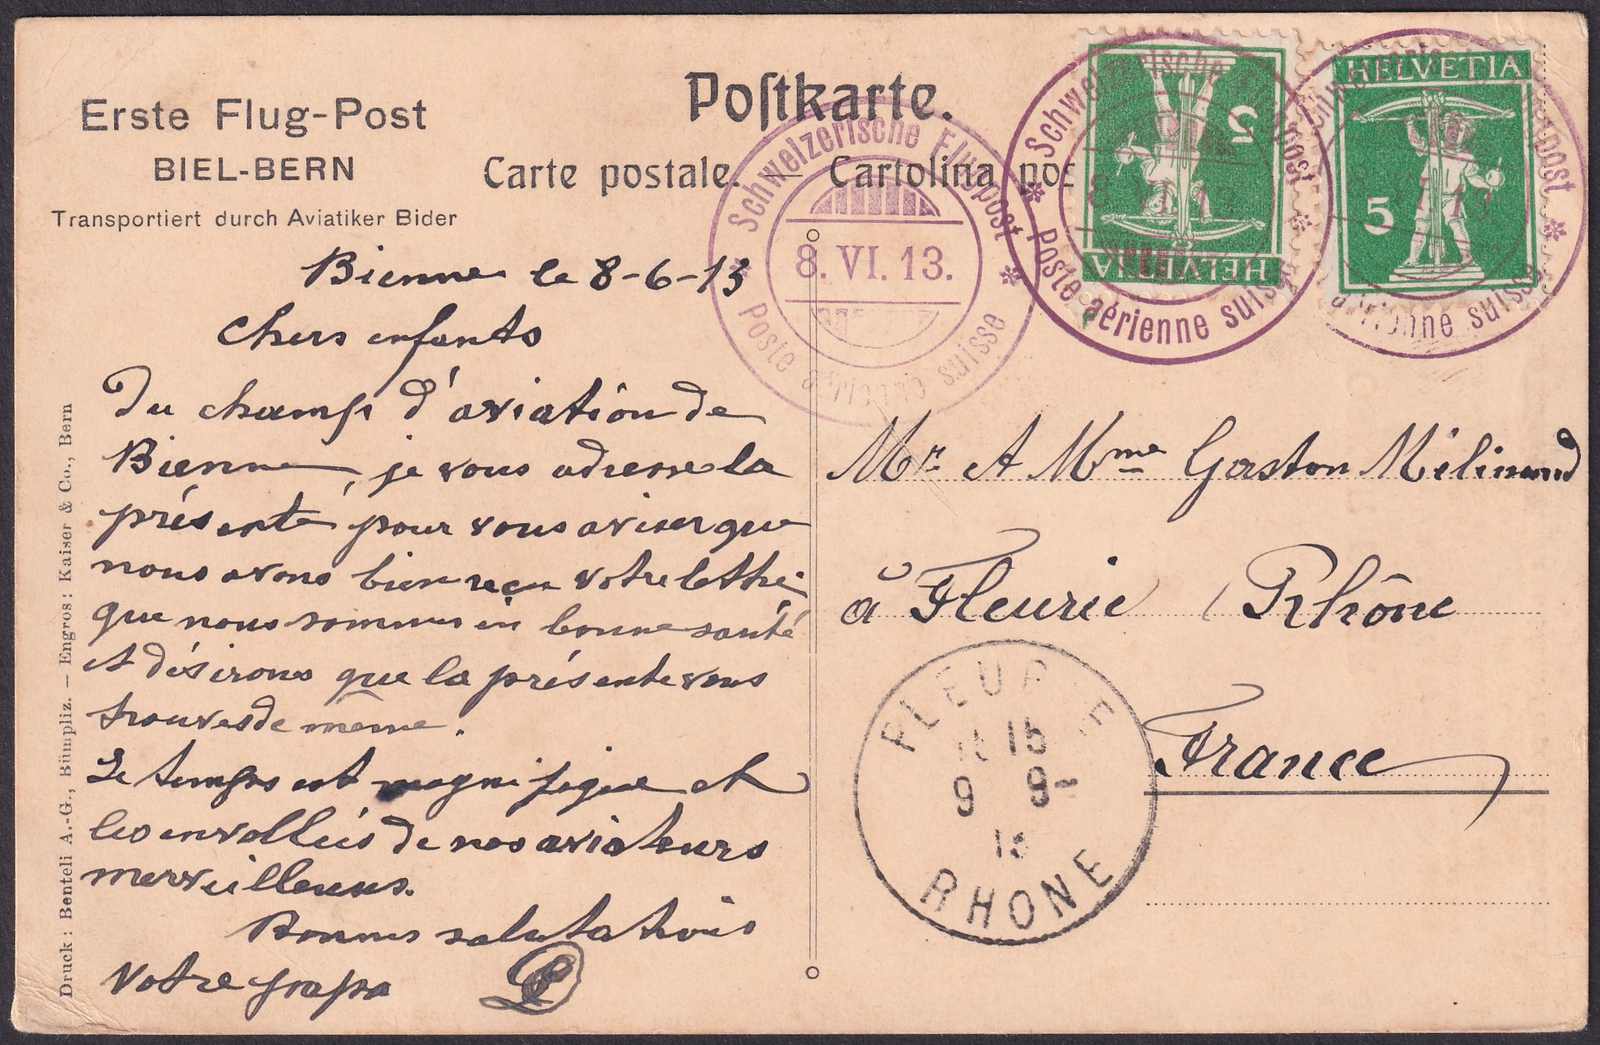 Erste Flug-Post
BIEL-BERN
Transportiert durch Aviatiker Bider
Postkarte.
Carte postale. — Cartolina pos
Schweizerische Flugpost
8. VI. 13.
Poste aérienne suisse
Schweizerische Flugpost
8. VI. 13
Poste aérienne suisse
5
HELVETIA
Schweizerische Flugpost
aérienne suisse
HELVETIA
5
Bienne le 8-6-13
Chers enfants
Du champ d'aviation de
Bienne, je vous adresse la
présente pour vous aviser que
nous avons bien reçu votre lettre,
que nous sommes en bonne santé
et désirons que la présente vous
trouves de même.
Le temps est magnifique et
les envollées de nos aviateurs
merveilleuses.
Bonnes salutations
Votre papa
Mr et Mme Gaston Mélinand
à Fleurie Rhône
France
FLEURIE
15
9 9-
13
RHONE
Druck: Benteli A.-G., Bümpliz. — Engros: Kaiser & Co., Bern